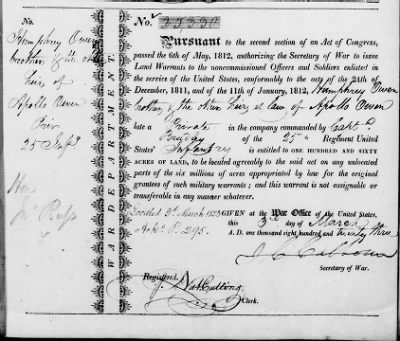 No. 25330
No.
Humphrey Owen
brother & the other
heir of
Apollo Owen
Priv
25 Infy
WAR DEPARTMENT
PURSUANT to the second section of an Act of Congress,
passed the 6th of May, 1812, authorizing the Secretary of War to issue
Land Warrants to the noncommissioned Officers and Soldiers enlisted in
the service of the United States, conformably to the acts of the 24th of
December, 1811, and of the 11th of January, 1812, Humphrey Owen
brother & the other heirs at law of Apollo Owen
late a Private in the company commanded by Capt
of the 25th Regiment United
States' Infantry is entitled to ONE HUNDRED AND SIXTY
ACRES OF LAND, to be located agreeably to the said act on any unlocated
parts of the six millions of acres appropriated by law for the original
grantees of such military warrants; and this warrant is not assignable or
transferable in any manner whatever.
Located 3d March 1823
Arks P. 295.
GIVEN at the War Office of the United States,
this 3d day of March
A. D. one thousand eight hundred and twenty three
J C Calhoun
Secretary of War.
Registered,
Nat. Cutting
Clerk.